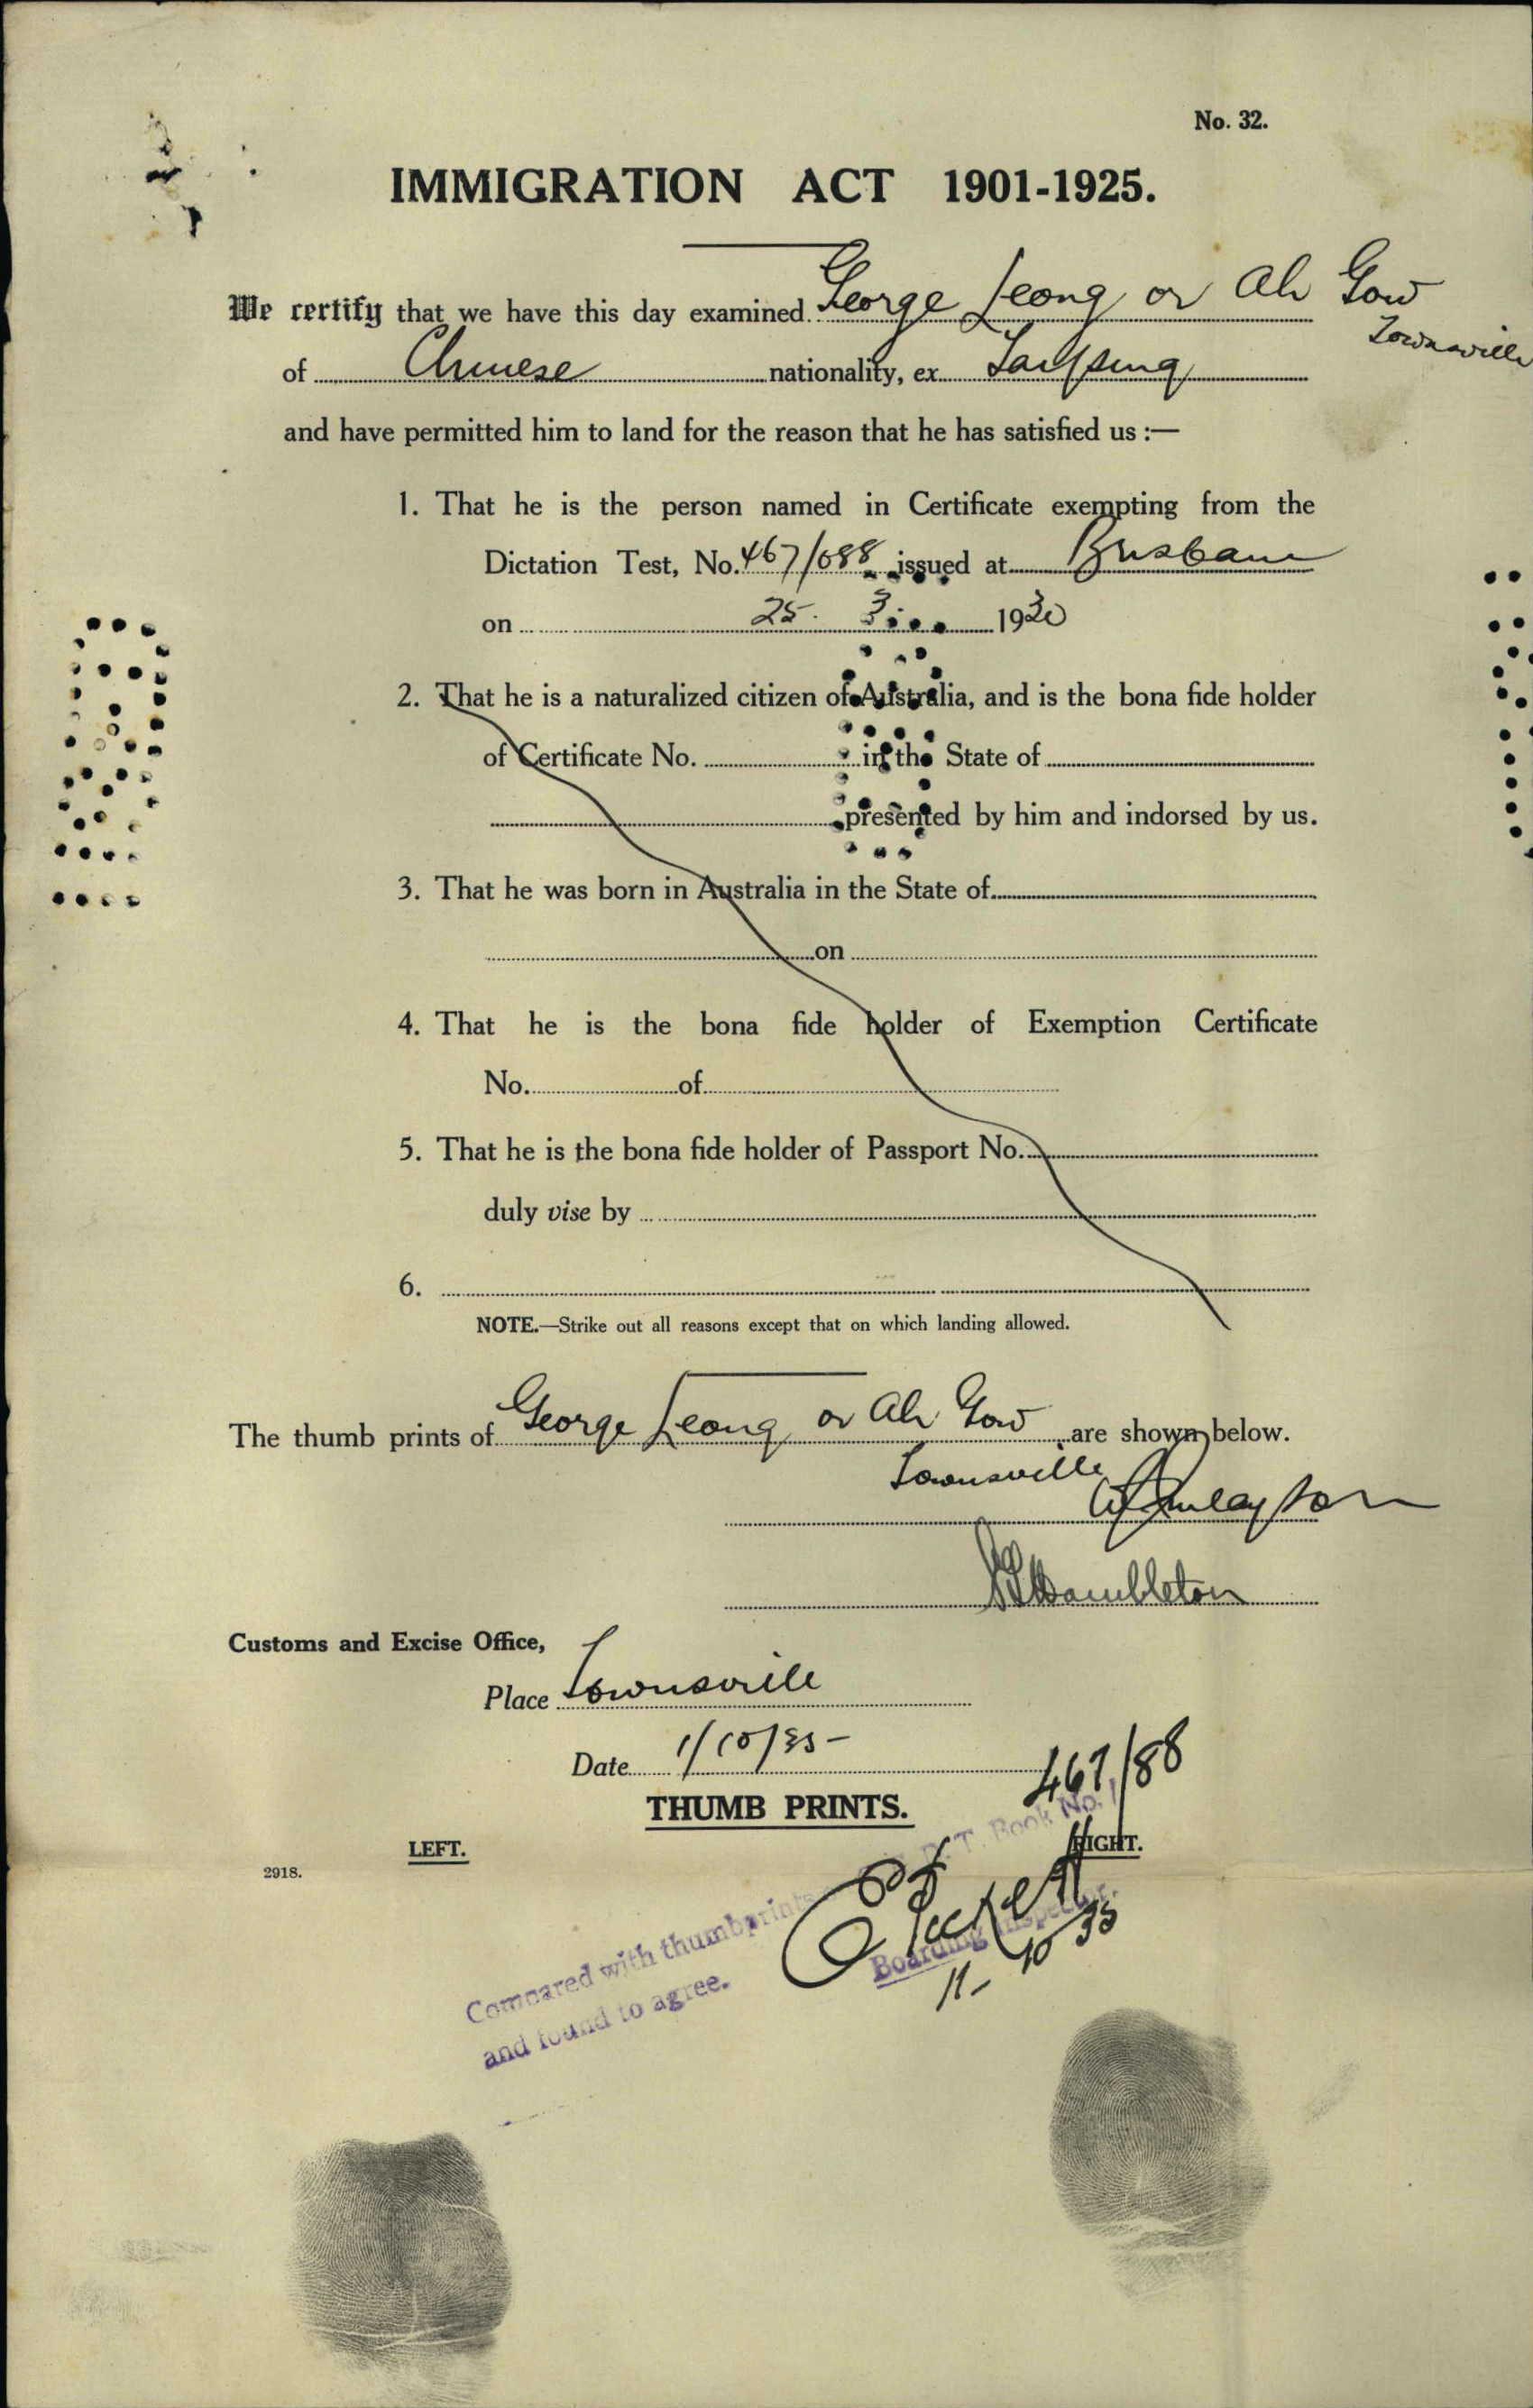 No. 32.
IMMIGRATION ACT 1901-1925.
We certify that we have this day examined George Leong or Ah Gow
Townsville
of Chinese nationality, ex Taiping
and have permitted him to land for the reason that he has satisfied us :—
1. That he is the person named in Certificate exempting from the
Dictation Test, No. 467/088 issued at Brisbane
on 25. 3. 1930
2. That he is a naturalized citizen of Australia, and is the bona fide holder
of Certificate No. in the State of
presented by him and indorsed by us.
3. That he was born in Australia in the State of
on
4. That he is the bona fide holder of Exemption Certificate
No. of
5. That he is the bona fide holder of Passport No.
duly vise by
6.
NOTE.—Strike out all reasons except that on which landing allowed.
The thumb prints of George Leong or Ah Gow are shown below.
Townsville
Hambleton
Customs and Excise Office,
Place Townsville
Date 1/10/35
467/88
THUMB PRINTS.
D.T. Book No.
LEFT. RIGHT.
2918.
Compared with thumbprints
and found to agree.
Boarding Inspector.
11-10 35